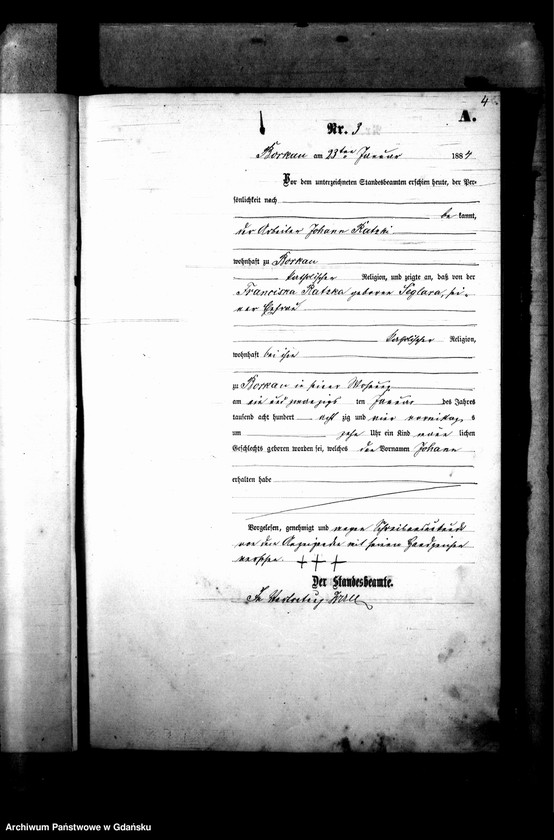 4
A.
Nr. 3
Borkau am 23ten Januar 1884
Vor dem unterzeichneten Standesbeamten erschien heute, der Per-
sönlichkeit nach
be kannt,
der Arbeiter Johann Ratzki
wohnhaft zu Borkau
katholischer Religion, und zeigte an, daß von der
Franciska Ratzka geborenen Seglara, sei-
ner Ehefrau
katholischer Religion,
wohnhaft bei ihm
zu Borkau in seiner Wohnung
am ein und zwanzigsten Januar des Jahres
tausend acht hundert acht zig und vier vormittags
um zehn Uhr ein Kind männlichen
Geschlechts geboren worden sei, welches den Vornamen Johann
erhalten habe
Vorgelesen, genehmigt und wegen Schreibensunkunde
von dem Anzeigenden mit seinem Handzeichen
versehen. +++
Der Standesbeamte.
In Vertretung
Archiwum Państwowe w Gdańsku